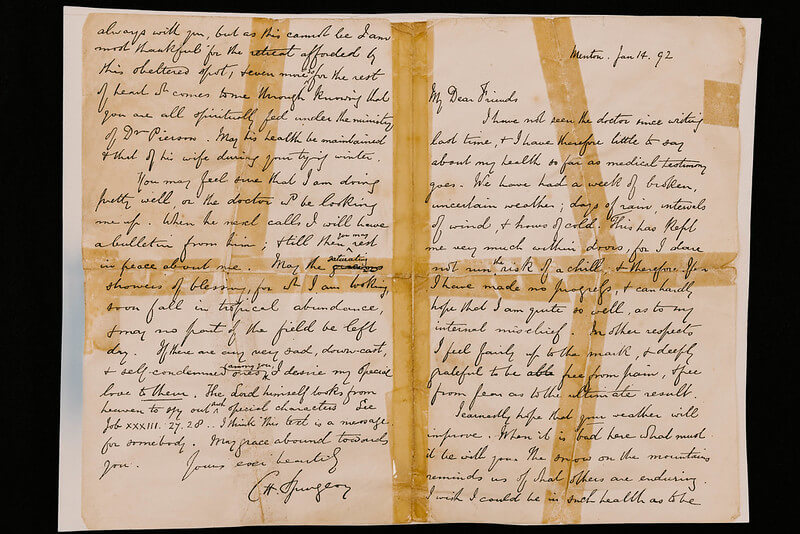 Menton. Jan 14. 92
My Dear Friends
I have not seen the doctor since writing
last time, & I have therefore little to say
about my health so far as medical testimony
goes. We have had a week of broken,
uncertain weather; days of rain, intervals
of wind, & hours of cold. This has kept
me very much within doors, for I dare
not run the risk of a chill, & therefore I fear
I have made no progress, & can hardly
hope that I am quite so well, as to my
internal mischief. In other respects
I feel fairly up to the mark, & deeply
grateful to be able free from pain, & free
from fear as to the ultimate result.
I earnestly hope that your weather will
improve. When it is bad here what must
it be with you. The snow on the mountains
reminds us of what others are enduring.
I wish I could be in such health as to be
always with you, but as this cannot be I am
most thankful for the retreat afforded by
this sheltered spot, & even more for the rest
of heart wh comes to me through knowing that
you are all spiritually fed under the ministry
of Dr Pierson. May his health be maintained
& that of his wife during your trying winter.
You may feel sure that I am doing
pretty well, or the doctor wd be looking
me up. When he next calls I will have
a bulletin from him; & till then you may rest
in peace about me. May the saturating gracious
showers of blessing, for wh I am looking,
soon fall in tropical abundance,
& may no part of the field be left
dry. If there are any very sad, down-cast,
& self-condemned ones among you, I desire my special
love to them. The Lord himself looks from
heaven to spy out such special characters. See
Job XXXIII. 27. 28. I think this text is a message
for somebody. May grace abound towards
you. Yours ever heartily
C. H. Spurgeon